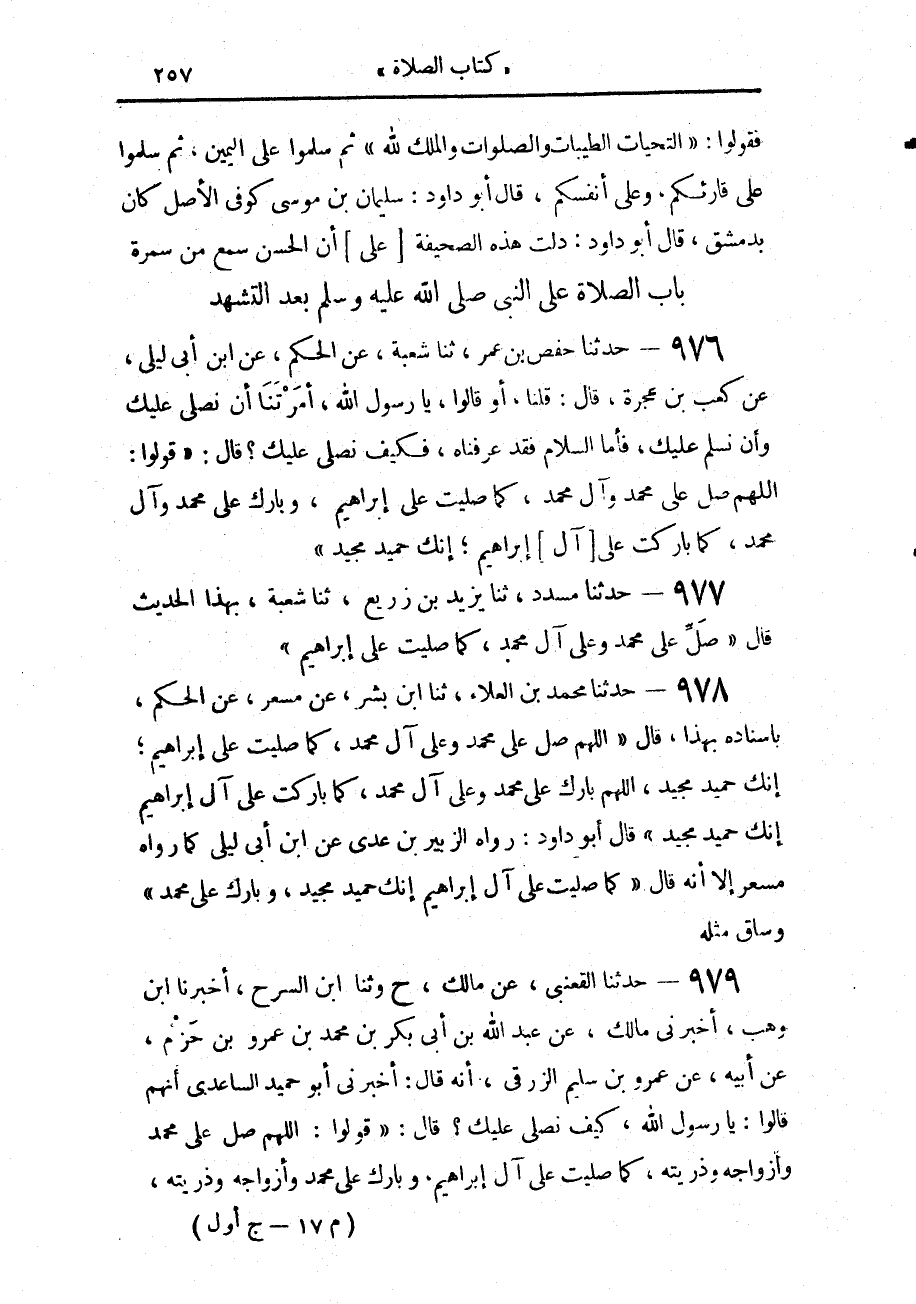 « كتاب الصلاة » ٢٥٧
فقولوا : « التحيات الطيبات والصلوات والملك لله » ثم سلموا على اليمين ، ثم سلموا
على قارئكم . وعلى أنفسكم ، قال أبو داود : سليمان بن موسى كوفى الأصل كان
بدمشق ، قال أبو داود : دلت هذه الصحيفة [ على ] أن الحسن سمع من سمرة
باب الصلاة على النبى صلى الله عليه وسلم بعد التشهد
٩٧٦ — حدثنا حفص بن عمر ، ثنا شعبة ، عن الحكم ، عن ابن أبى ليلى ،
عن كعب بن عجرة ، قال : قلنا . أو قالوا ، يا رسول الله ، أمَرْتَنَا أن نصلى عليك
وأن نسلم عليك ، فأما السلام فقد عرفناه ، فكيف نصلى عليك ؟ قال : « قولوا :
اللهم صل على محمد وآل محمد ، كما صليت على إبراهيم ، وبارك على محمد وآل
محمد ، كما باركت على [ آل ] إبراهيم ؛ إنك حميد مجيد »
٩٧٧ — حدثنا مسدد ، ثنا يزيد بن زريع ، ثنا شعبة ، بهذا الحديث
قال « صَلِّ على محمد وعلى آل محمد ، كما صليت على إبراهيم »
٩٧٨ — حدثنا محمد بن العلاء ، ثنا ابن بشر ، عن مسعر ، عن الحكم ،
باسناده بهذا ، قال « اللهم صل على محمد وعلى آل محمد ، كما صليت على إبراهيم ؛
إنك حميد مجيد ، اللهم بارك على محمد وعلى آل محمد ، كما باركت على آل إبراهيم
إنك حميد مجيد » قال أبو داود : رواه الزبير بن عدى عن ابن أبى ليلى كما رواه
مسعر إلا أنه قال « كما صليت على آل إبراهيم إنك حميد مجيد ، وبارك على محمد »
وساق مثله
٩٧٩ — حدثنا القعنبى ، عن مالك ، ح وثنا ابن السرح ، أخبرنا ابن
وهب ، أخبرنى مالك ، عن عبد الله بن أبى بكر بن محمد بن عمرو بن حَزْم ،
عن أبيه ، عن عمرو بن سليم الزرقى ، أنه قال : أخبرنى أبو حميد الساعدى أنهم
قالوا : يا رسول الله ، كيف نصلى عليك ؟ قال : « قولوا : اللهم صل على محمد
وأزواجه وذريته ، كما صليت على آل إبراهيم . وبارك على محمد وأزواجه وذريته ،
( م ١٧ — ج أول )